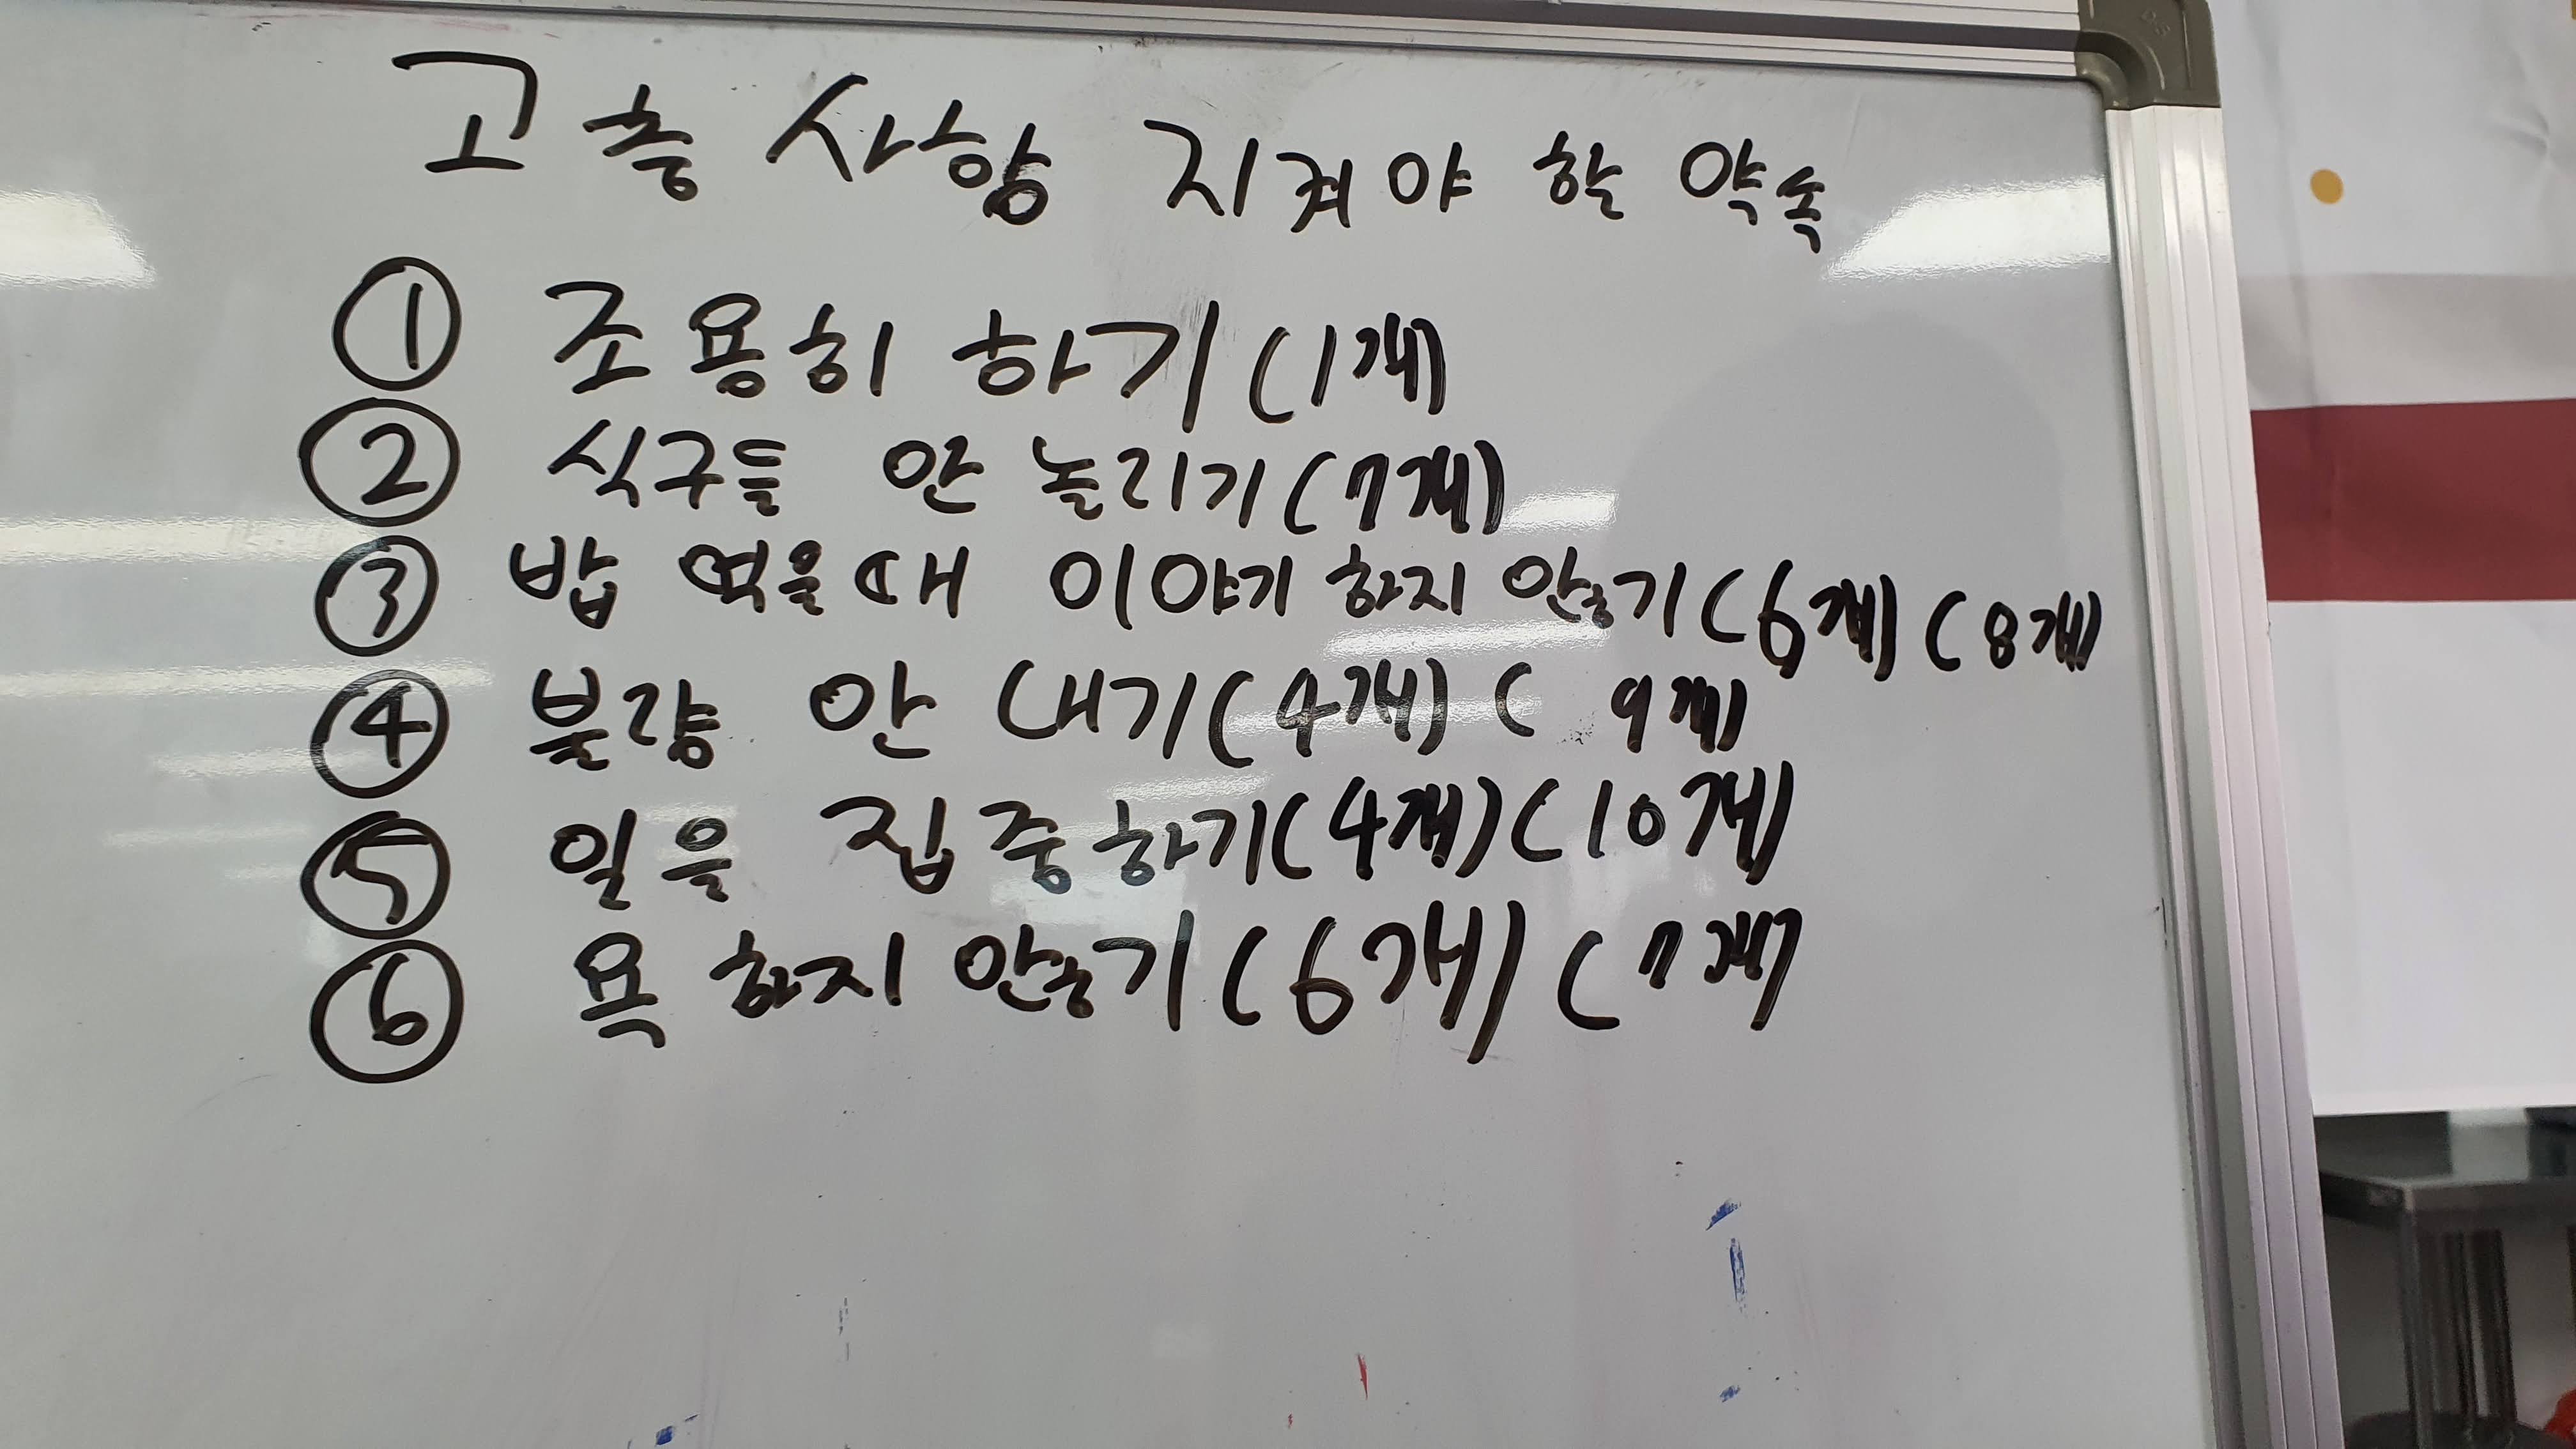 고충 사항 지켜야 할 약속
① 조용히 하기 (1개)
② 식구들 안 놀리기 (7개)
③ 밥 먹을 때 이야기 하지 안놓기 (6개) (8개)
④ 불량 안 내기 (4개) ( 9개)
⑤ 일을 집중하기 (4개) (10개)
⑥ 욕 하지 안놓기 (6개) (7개)